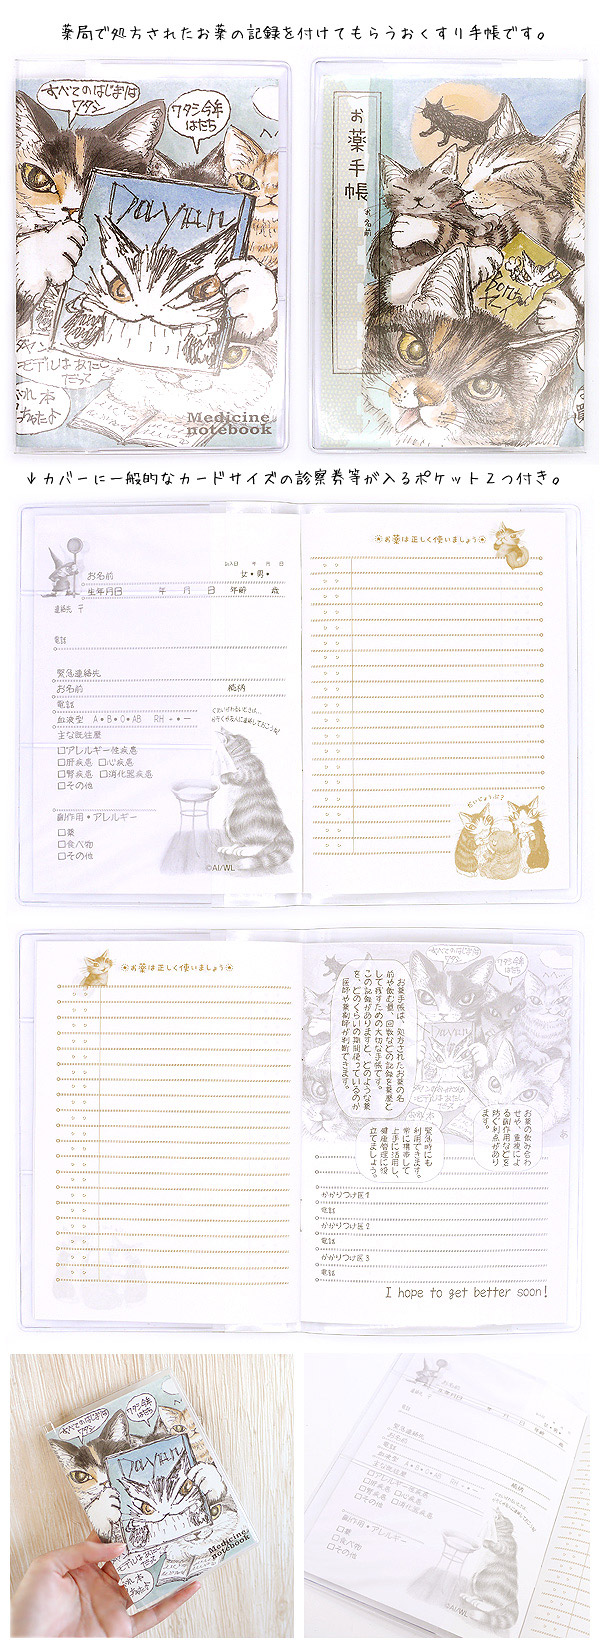 薬局で処方されたお薬の記録を付けてもらうおくすり手帳です。
すべてのはじまりは
ワタシ
ワタシ今年
はたち
Dayan
ダヤン
モデルはあたし
だって
Medicine
notebook
お薬手帳
お名前
↓カバーに一般的なカードサイズの診察券等が入るポケット2つ付き。
記入日 年 月 日
お名前 女・男・
生年月日 年 月 日 年齢 歳
連絡先 〒
電話
緊急連絡先
お名前 続柄
電話
血液型 A・B・O・AB RH + • −
主な既往歴
□アレルギー性疾患
□肝疾患 □心疾患
□腎疾患 □消化器疾患
□その他
副作用・アレルギー
□薬
□食べ物
□その他
©AI/WL
お薬は正しく使いましょう
だいじょうぶ?
お薬は正しく使いましょう
お薬手帳は、処方されたお薬の名
前や飲む量、回数などの記録を薬歴と
して残すための大切な手帳です。
この記録がありますと、どのような薬
を、どのくらいの期間使っているのか
医師や薬剤師が判断できます。
お薬の飲み合わ
せや、重複によ
る副作用などを
防ぐ利点があり
ます。
緊急時にも
利用できます。
常に携帯して
上手に活用し、
健康管理に役
立てましょう。
かかりつけ医1
電話
かかりつけ医2
電話
かかりつけ医3
電話
I hope to get better soon!
すべてのはじまりは
ワタシ
ワタシ今年
はたち
Dayan
モデルはあたし
だって
Medicine
notebook
お名前
緊急連絡先
お名前
電話
血液型 A・B・O・AB
主な既往歴
□アレルギー性疾患
□肝疾患 □心疾患
□腎疾患 □消化器疾患
□その他
副作用・アレルギー
□薬
□食べ物
□その他
続柄
©AI/WL